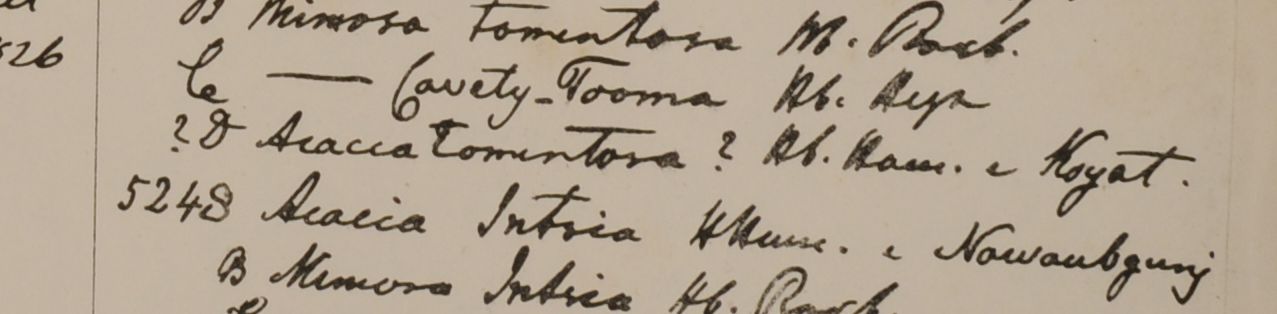 B Mimosa tomentosa Hb. Roxb.
526
C —— Cavety-Tooma Hb. Heyn
? D Acacia tomentosa ? Hb. Ham. e Koyat.
5248 Acacia Intsia HHam. e Nawaubgunj
B Mimosa Intsia Hb. Roxb.